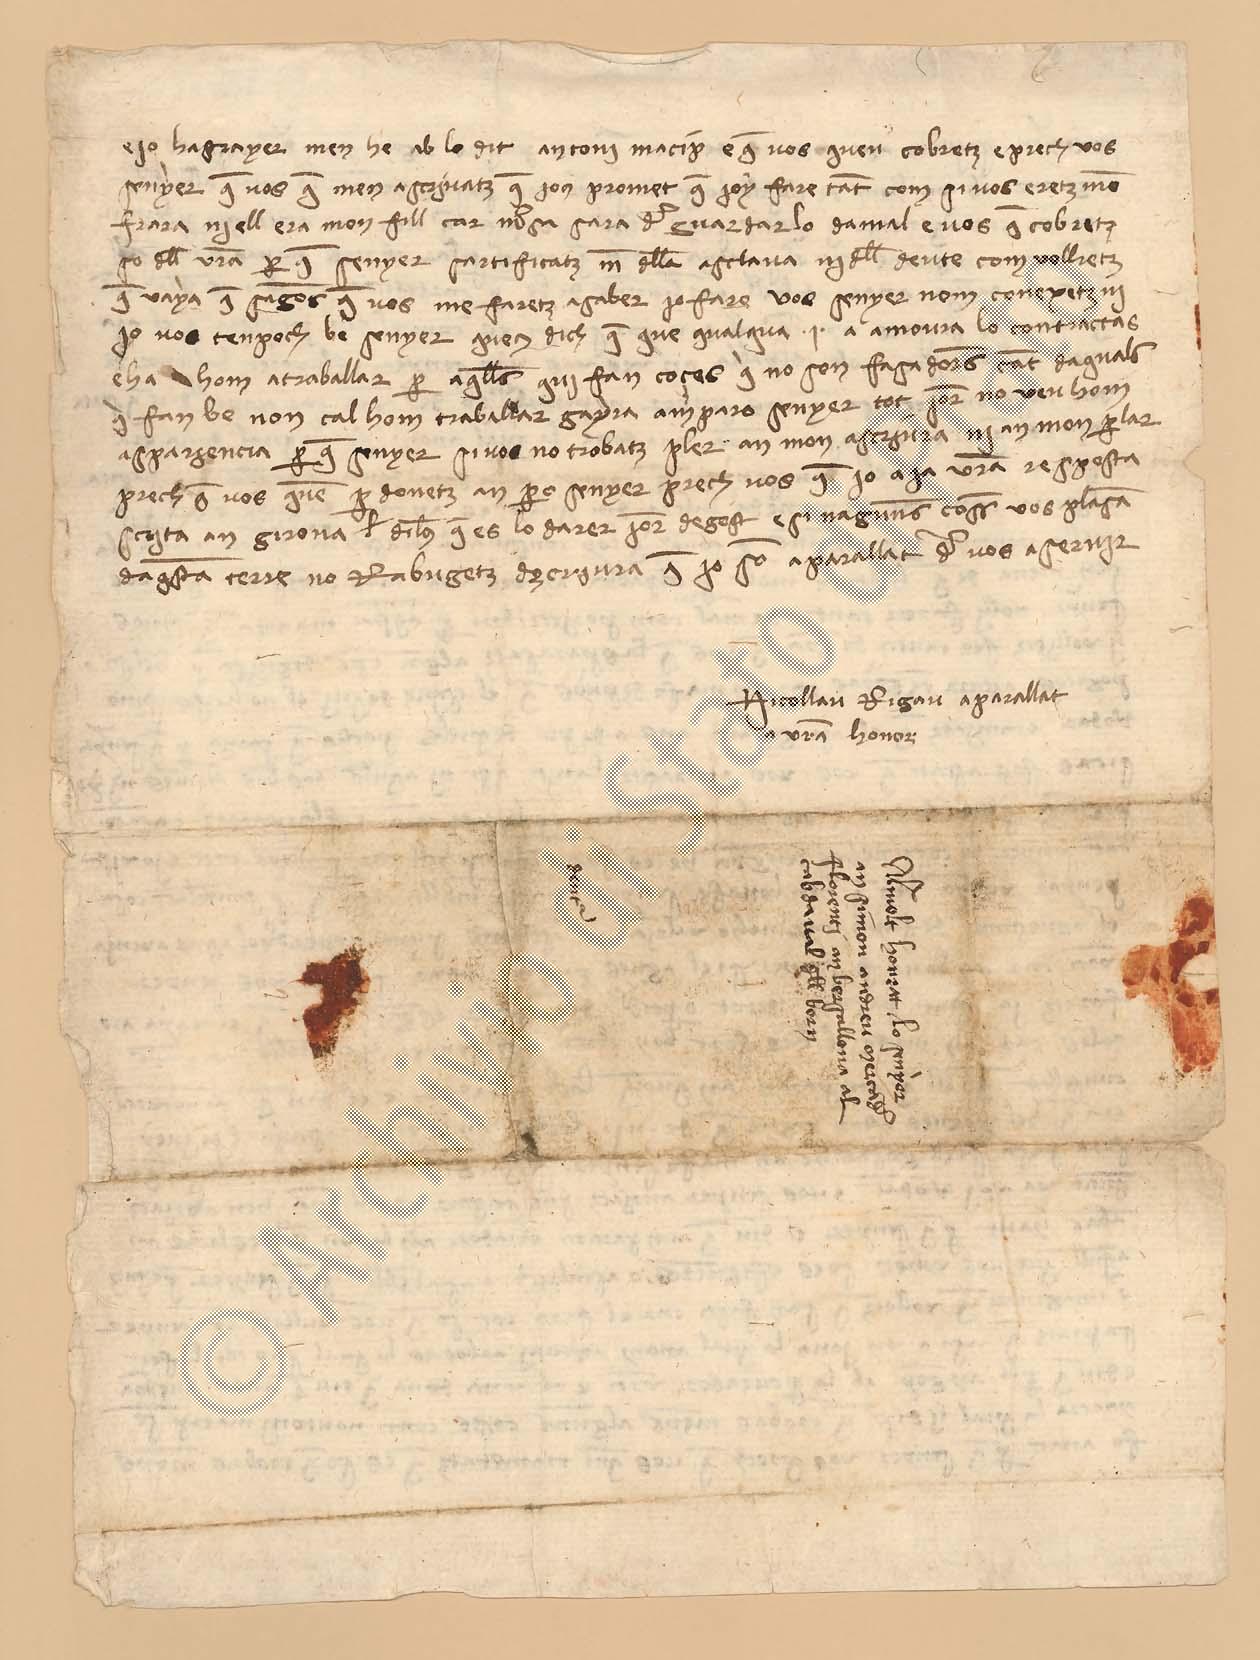 e jo hagrayer men he ab lo dit antoni macip e q̄ vos quen cobretz e prech vos
senyer q̄ vos q̄ men ascrivatz q̄ jon promet q̄ joy fare tāt com si vos eretz mō
frara ni ell era mon fill car sara d̄ guardar lo damal e vos q̄ cobretz
so dll vrā per q̄ senyer sartificatz m̄ dlla asclava ni dll deute com vollretz
q̄ vaya q̄ q̄ vos me faretz asaber jo fare vos senyer nom conexetz ni
jo vos tenpoch be senyer dich q̄ que qualqua .j. a amoura lo contractas
e ha hom a traballar per aqlls qui fan coçes q̄ no son fasadors tāt daquals
q̄ fan be non cal hom traballar gayra amparo senyer tot jor no veu hom
aspariencia per q̄ senyer si vos no trobatz pler an mon ascriura ni an mon parlar
prech vos perdonetz an pero senyer prech vos q̄ jo aja vrā resposta
scrita an girona q̄ es lo darer jor degost e si nagunas coss vos plasā
daqsta terre no Rabugetz dascriura q̄ jo sō aparallat d̄ vos a servir
Nicollau Rigau aparallat
a vrā honor
Al molt honrat lo senyer
an simon andreu mercad
florenti an bersallona al
cab da val dll born
© Archivio di Stato di Prato